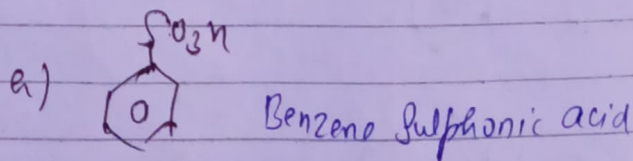 SO3H
a) Benzene Sulphonic acid